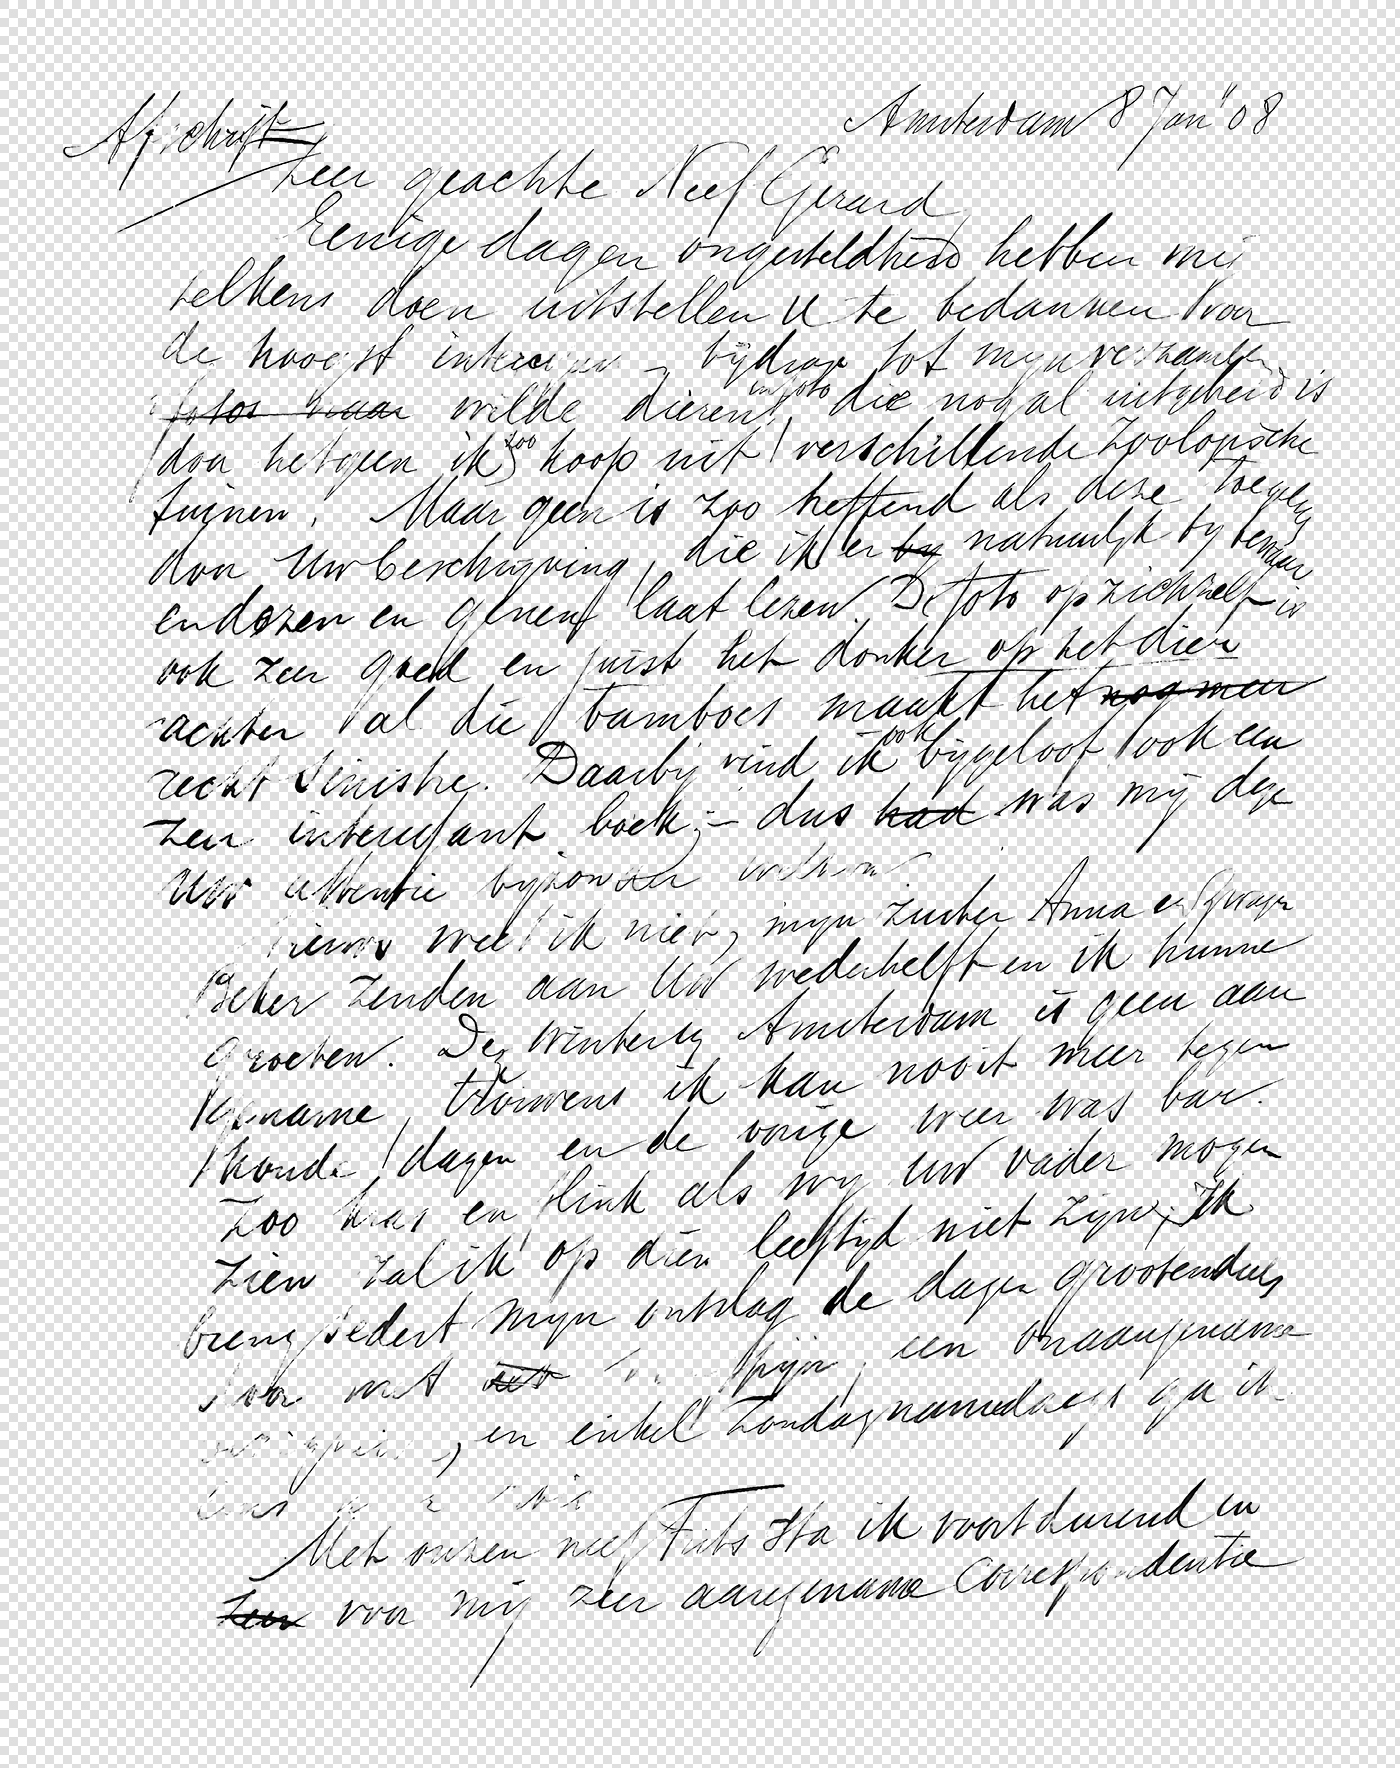 Afschrift
Amsterdam 8 Jan" 08
Zeer geachte Neef Gerard
Eenige dagen ongesteldheid hebben mij
telkens doen uitstellen U te bedanken voor
de hoogst bijdrage tot mijn verzameling
fotos naar wilde dieren in foto die nogal uitgebreid is
door hetgeen ik zoo koop uit verschillende Zoologische
tuinen. Maar geen is zoo treffend als deze
door Uw beschrijving, die ik er by natuurlijk by bewaar
en dezen en genen laat lezen. De foto op zichzelf is
ook zeer goed en juist het donker op het dier
achter al die bamboes maakt het nog meer
recht sinistre. Daarby vind ik ook bijgeloof ook een
zeer interessant boek; – dus had was mij deze
Uw attentie byzonder welkom
Nieuws weet ik niet, mijn zuster Anna en Zwager
Beker zenden aan Uw wederhelft en ik hunne
groeten. De winter in Amsterdam is geen aan
gename, trouwens ik kan nooit meer tegen
koude dagen en de vorige weer was bar.
Zoo kras en flink als wy Uw vader mogen
zien zal ik op dien leeftijd niet zijn. Ik
breng sedert mijn ontslag de dagen grootendeels
door met pijn, een onaangename
, en enkel Zondagnamiddags ga ik
eens
Met onzen neef Frits sta ik voortdurend in
zeer voor mij zeer aangename Correspondentie